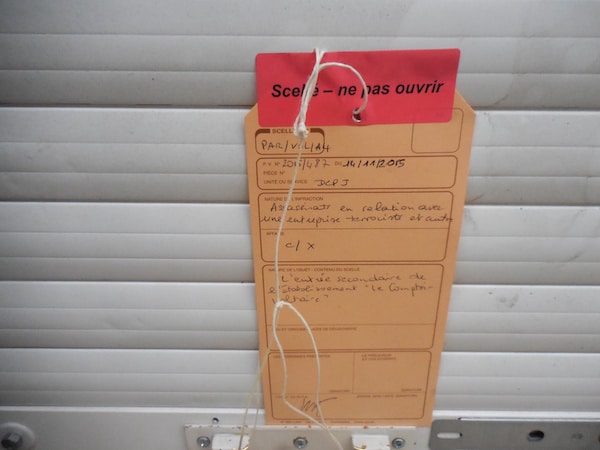 Scellé – ne pas ouvrir
SCELLÉ
PAR/VOL/14
P.V. N° 2015/487 DU 14/11/2015
PIÈCE N°
UNITÉ OU SERVICE DCPJ
NATURE DE L'INFRACTION
Assassinats en relation avec
une entreprise terroriste et autres
AFFAIRE
c/ X
NATURE DE L'OBJET - CONTENU DU SCELLÉ
L'entrée secondaire de
l'établissement "Le Comptoir
Voltaire"
SIGNATURE
SIGNATURE